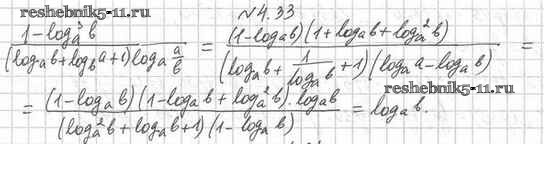 reshebnik5-11.ru
№4.33
(1-logₐ³b)/((logₐb+log_b a+1)logₐ(a/b)) = ((1-logₐb)(1+logₐb+logₐ²b))/((logₐb+1/(logₐb)+1)(logₐa-logₐb)) =
= ((1-logₐb)(1-logₐb+logₐ²b)·logₐb)/((logₐ²b+logₐb+1)(1-logₐb)) = logₐb.
reshebnik5-11.ru